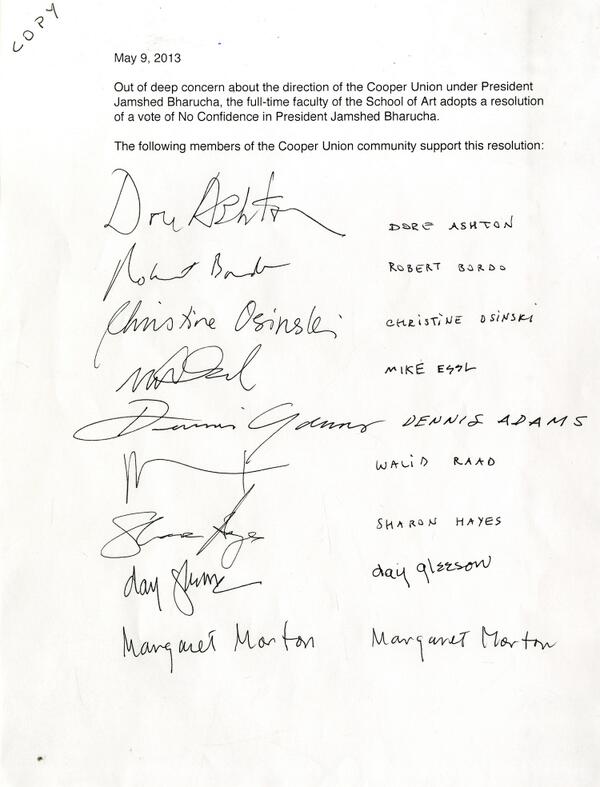 COPY
May 9, 2013
Out of deep concern about the direction of the Cooper Union under President
Jamshed Bharucha, the full-time faculty of the School of Art adopts a resolution
of a vote of No Confidence in President Jamshed Bharucha.
The following members of the Cooper Union community support this resolution:
Dore Ashton DORE ASHTON
Robert Bordo ROBERT BORDO
Christine Osinski CHRISTINE OSINSKI
MIKE ESSL
Dennis Adams DENNIS ADAMS
WALID RAAD
Sharon Hayes SHARON HAYES
day gleeson
Margaret Morton Margaret Morton